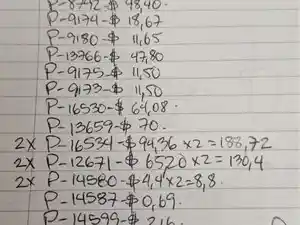 P-8792-$ 48,40.
P-9174-$ 18,67
P-9180-$ 11,65
P-13766-$ 47,80
P-9175-$ 11,50
P-9173-$ 11,50
P-16530-$ 64,08.
P-13659-$ 70.
2x P-16534-$94,36 x2=188,72
2x P-12671-$ 6520 x2=130,4
2x P-14580-$4,4x2=8,8.
P-14587-$0,69.
P-14599-$ 2,16.